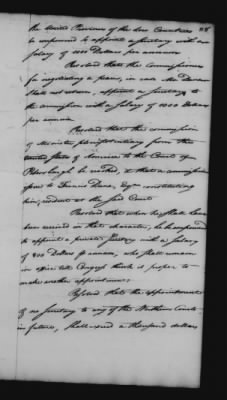 the United Provinces of the Low Countries 88
be empowered to appoint a Secretary with a
salary of 1000 Dollars per annum
Resolved that the Commissioners
for negotiating a peace, in case
shall not return, appoint a Secretary to
the commission with a Salary of 1000 Dollars
per annum
Resolved that the commission
of Minister plenipotentiary from the
United States of America to the Court of
Petersburgh be revoked, & that a commission
issue to Francis Dana, Esqr. constituting
him, resident at the said Court
Resolved that when he shall have
been received in that character, he be empowered
to appoint a private Secretary with a Salary
of 800 Dollars p annum, who shall remain
in office till Congress think it proper to
make another appointment.
Resolved that the appointment
of no Secretary to any of the Northern Courts
in future, shall exceed a thousand dollars